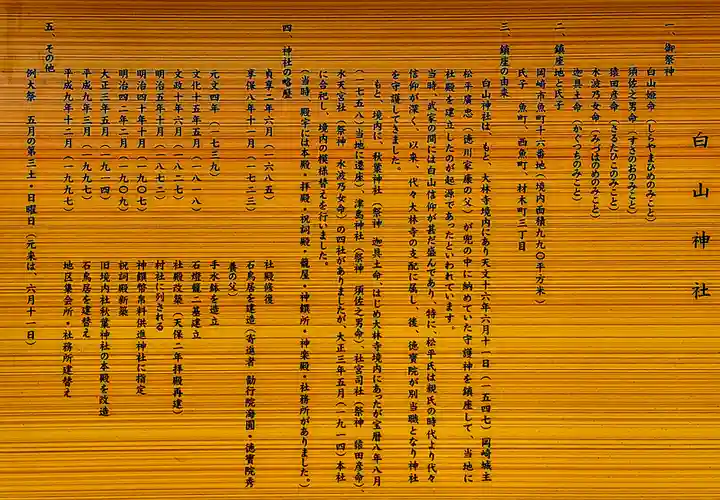 白山神社
一、御祭神
白山姫命（しらやまひめのみこと）
須佐之男命（すさのおのみこと）
猿田彦命（さるたひこのみこと）
水波乃女命（みづはめのみこと）
迦具土命（かぐつちのみこと）
二、鎮座地と氏子
岡崎市魚町十六番地（境内面積九九〇平方米）
氏子　魚町、西魚町、材木町三丁目
三、鎮座の由来
白山神社は、もと、大林寺境内にあり天文十六年六月十一日（一五四七）岡崎城主
松平廣忠（徳川家康の父）が兜の中に納めていた守護神を鎮座して、当地に
社殿を建立したのが起源であったといわれています。
当時、武家の間には白山信仰が甚だ盛んであり、特に、松平氏は親氏の時代より代々
信仰が深く、以来、代々大林寺の支配に属し、後、徳寳院が別当職となり神社
を守護してきました。
もと、境内に、秋葉神社（祭神　迦具土命、はじめ大林寺境内にあったが宝暦八年八月
（一七五八）当地に遷座）、津島神社（祭神　須佐之男命）、社宮司社（祭神　猿田彦命）、
水天宮社（祭神　水波乃女命）の四社がありましたが、大正三年五月（一九一四）本社
に合祀し、境内の模様替えを行いました。
（当時、殿宇には本殿・拝殿・祝詞殿・籠屋・神饌所・神楽殿・社務所がありました。）
四、神社の略歴
貞享二年六月（一六八五）　社殿修復
享保八年十一月（一七二三）　石鳥居を建造（寄進者　勧行院海圓・徳寳院秀
養の父）
元文四年（一七三九）　手水鉢を造立
文化十五年五月（一八一八）　石燈籠二基建立
文政十年六月（一八二七）　社殿改築（天保二年拝殿再建）
明治五年十月（一八七二）　村社に列される
明治四十年十月（一九〇七）　神饌幣帛料供進神社に指定
明治四二年二月（一九〇九）　祝詞殿新築
大正三年五月（一九一四）　旧境内社秋葉神社の本殿を改造
平成九年三月（一九九七）　石鳥居を建替え
平成九年十二月（一九九七）　地区集会所・社務所建替え
五、その他
例大祭　五月の第三土・日曜日（元来は、六月十一日）